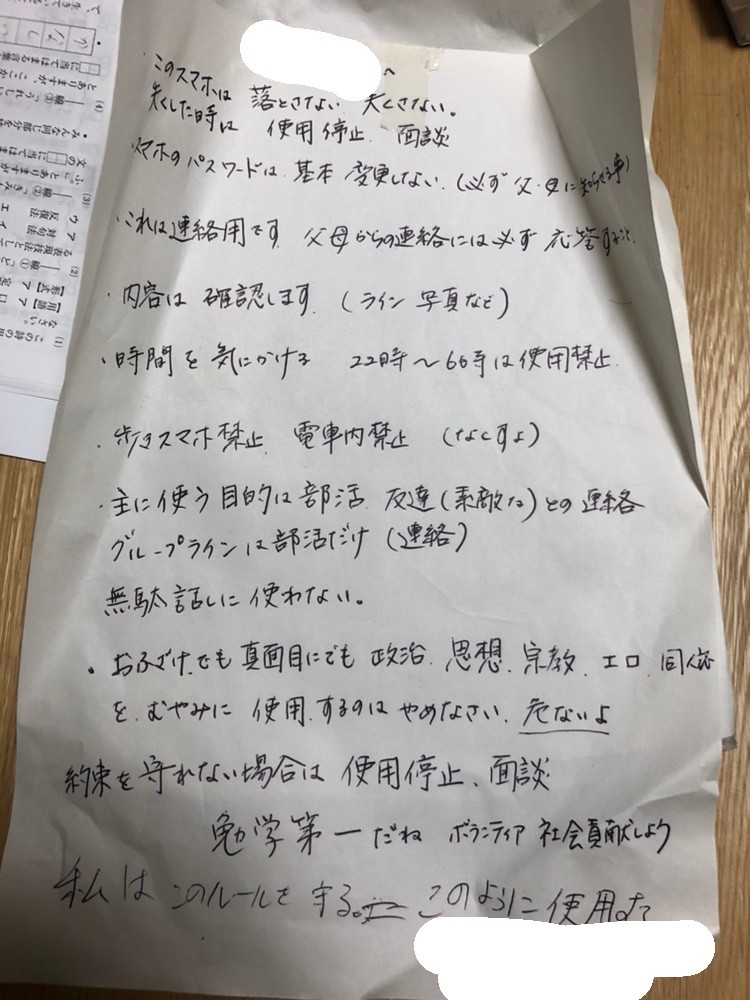 へ
・このスマホは 落とさない 失くさない。
失くした時は 使用停止 面談
・スマホのパスワードは 基本 変更しない (必ず 父・母に知らせる事)
・これは連絡用です 父母からの連絡には必ず 応答すること
・内容は 確認します (ライン 写真など)
・時間を 気にかける 22時〜6時は使用禁止
・歩きスマホ禁止 電車内禁止 (なくすよ)
・主に使う目的は部活 友達(素敵な)との連絡
グループラインは部活だけ (連絡)
無駄話しに使わない。
・おふざけでも 真面目にでも 政治 思想 宗教 エロ
を むやみに 使用するのは やめなさい 危ないよ
約束を守れない場合は 使用停止 面談
勉学第一だね ボランティア 社会貢献しよう
私は このルールを 守る。 このように使用